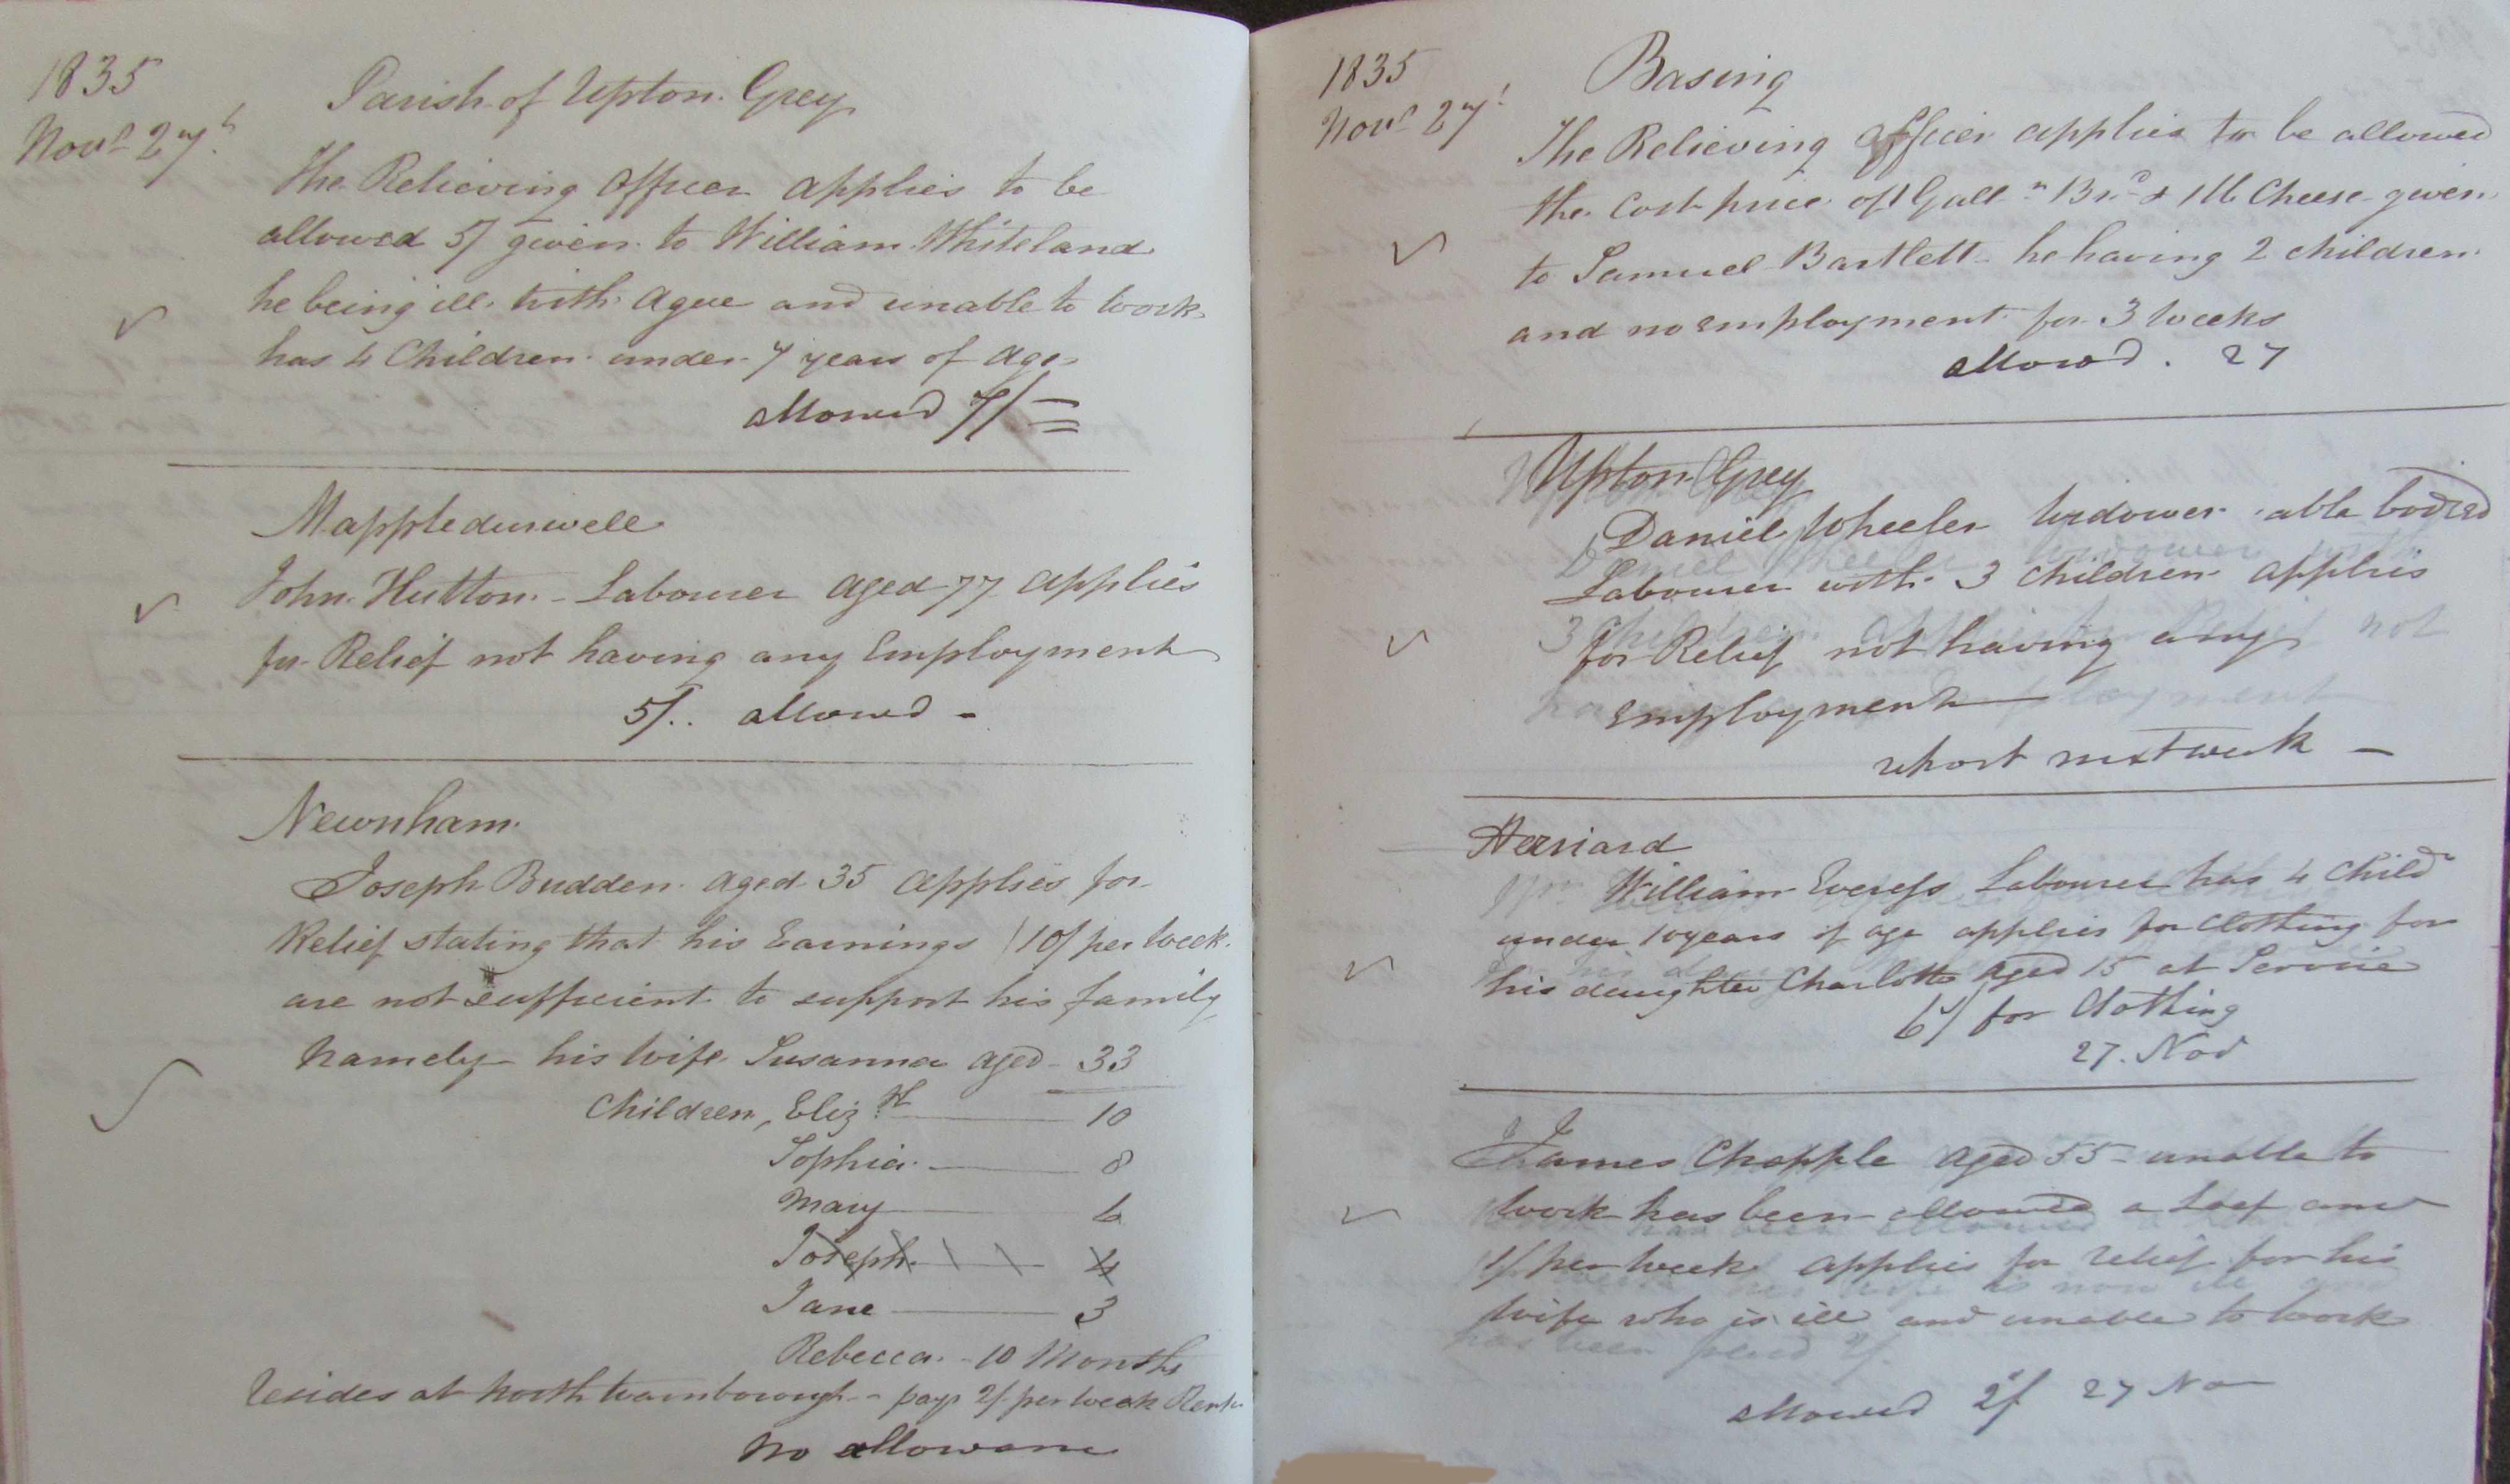 1835
Novr 27th
Parish of Upton Grey
The Relieving Officer applies to be
allowed 5/ given to William Whiteland
he being ill with Ague and unable to work
has 4 Children under 7 years of Age
allowed 7/-
Mapplederwell
John Hutton - Labourer aged 77 applies
for Relief not having any Employment
5/.. allowed -
Newnham
Joseph Budden aged 35 applies for
Relief stating that his Earnings 10/ per Week
are not sufficient to support his family
Namely his Wife Susanna aged - 33
Children, Elizth 10
Sophia 8
Mary 6
Joseph 4
Jane 3
Rebecca - 10 Months
resides at North Warnborough - pays 2/ per week Rent
No allowance
1835
Novr 27th
Basing
The Relieving Officer applies to be allowed
the Cost price of 1 Galln Brd & 1 lb Cheese given
to Samuel Bartlett he having 2 children
and no employment for 3 Weeks
allowed . 27
Upton Grey
Daniel Wheeler Widower able bodied
Labourer with 3 children applies
for Relief not having any
employment
report next week -
Herriard
William Labourer has 4 Child
under 10 years of age applies for Clothing for
his daughter Charlotte aged 15 at Service
6/ for Clothing
27. Nov
James Chapple aged 55 - unable to
Work has been allowed a Loaf and
1/ per Week applies for relief for his
Wife who is ill and unable to Work
allowed 2/ 27 Nov